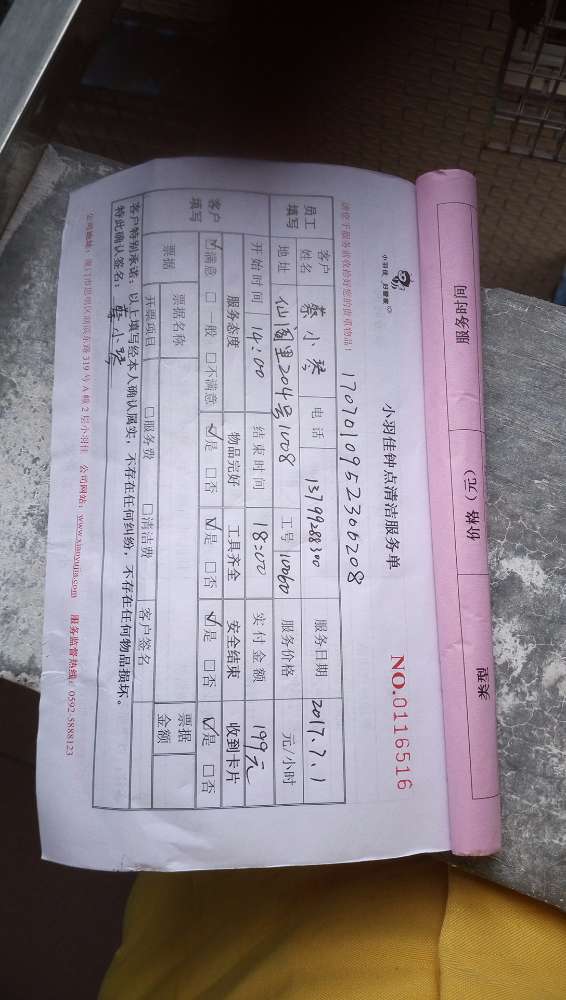 小羽佳 好管家
小羽佳钟点清洁服务单
NO.0116516
请您于服务前收拾好您的贵重物品!
1707010952306208
员工填写
客户姓名 蔡小琴 电话 13799288300 服务日期 2017.7.1
地址 仙阁里204号1008 工号 10060 服务价格 元/小时
开始时间 14:00 结束时间 18:00 实付金额 199元
客户填写
服务态度 物品完好 工具齐全 安全结束 收到卡片
☑满意 □一般 □不满意 ☑是 □否 ☑是 □否 ☑是 □否 ☑是 □否
票据 票据名称 票据金额
开票项目 □服务费 □清洁费 客户签名
客户特别承诺:以上填写经本人确认属实,不存在任何纠纷,不存在任何物品损坏。
特此确认签名:蔡小琴
公司地址:厦门市思明区湖滨东路319号A幢2层小羽佳 公司网站:www.xiaoyujia.com 服务监督热线:0592-5888123
服务时间 价格(元) 来电